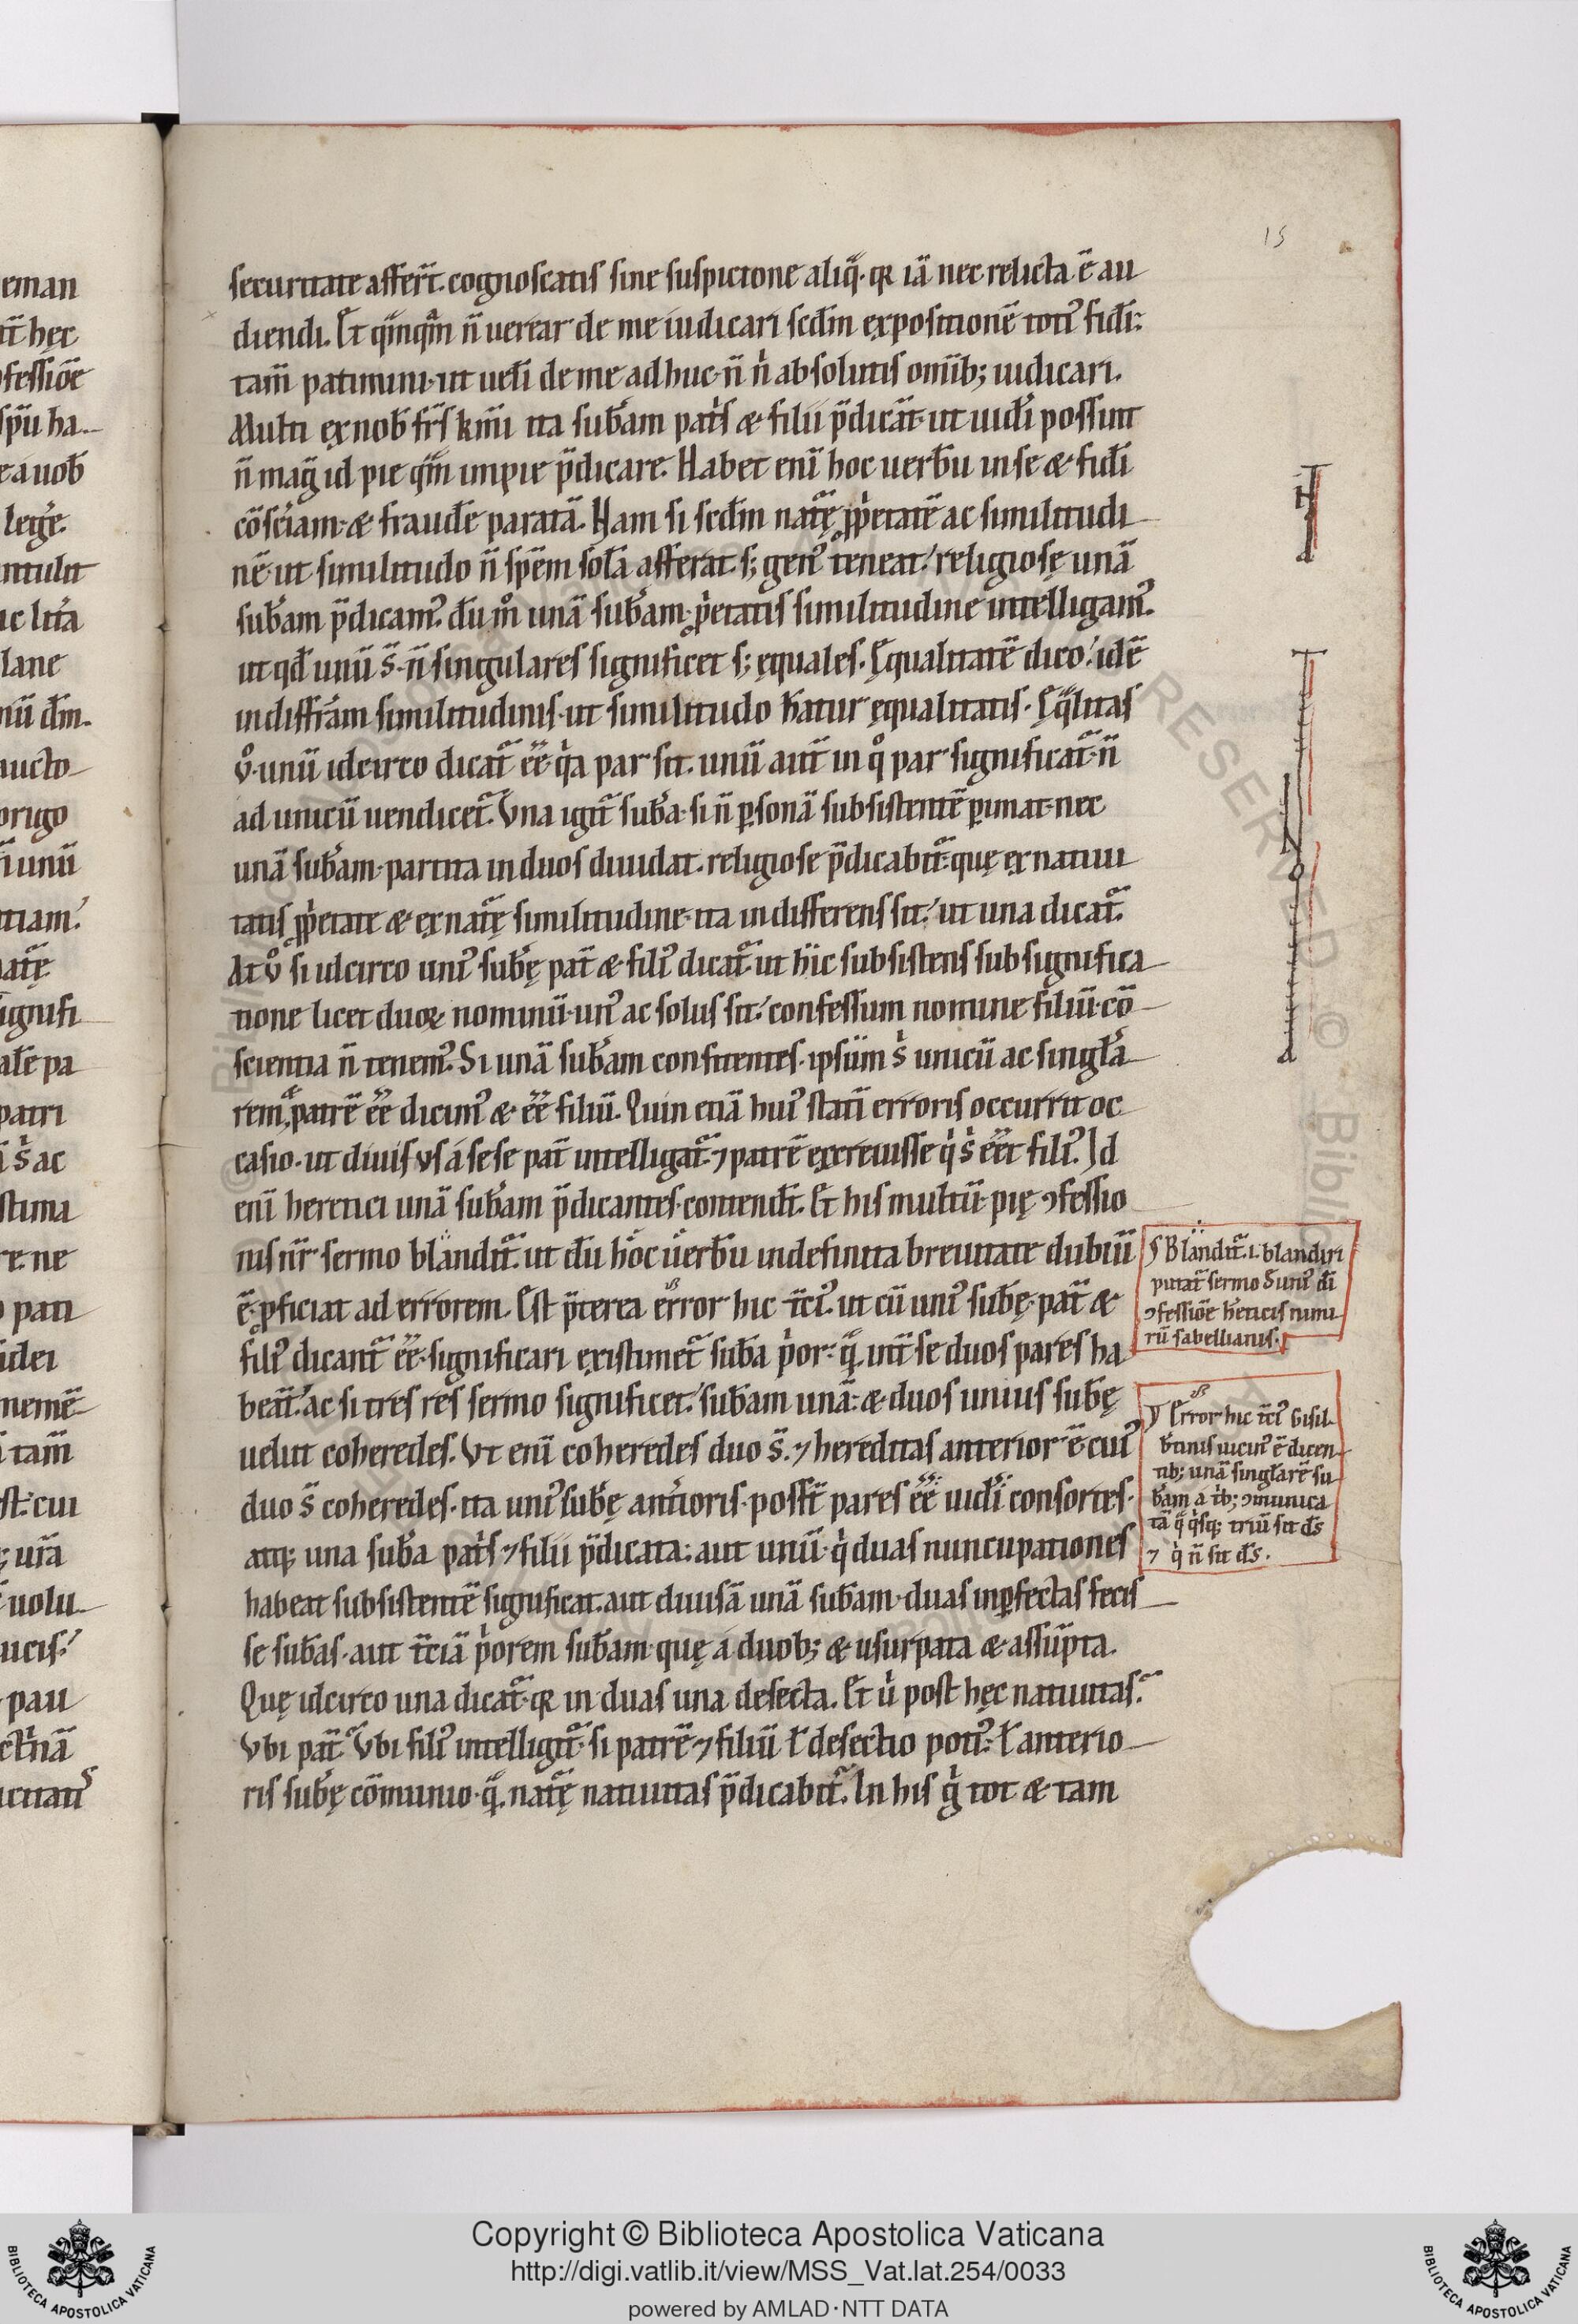 15
securitate affert̄. cognoscatis sine suspicione aliq̄. qꝛ iā nec relicta ē au
diendi. Et qm̄qm̄ n̄ uerear de me iudicari scd̄m expositionē totiꝰ fidī:
tam̄ patimini. ut uelī de me ad huc. n̄ nͥ absolutis om̄ib; iudicari.
Multi ex nob̄ fr̄s km̄i ita sub̄am pat̄s & filii p̄dicāt. ut uidī possint
n̄ maḡ id pie qm̄ impie p̄dicare. Habet enī hoc uerb̄u in se & fidī
cōsc̄iam. & fraudē paratā. Nam si scd̄m nat̄ę ꝓpͥetatē ac similitudi
nē. ut similitudo n̄ spēm solā afferat. s; genꝰ teneat. religiosę unā
sub̄am p̄dicamꝰ. dū mͦ unā sub̄am. pͥetatis similitudine intelligamꝰ.
ut qd̄ unū s̄. n̄ singulares significet s; ęquales. Ęqualitatē dico. idē
indiffr̄am similitudinis. ut similitudo h̄atur ęqualitatis. Ęq̄litas
ỽͦ. unū idcirco dicat̄ ēē. qͥa par sit. unū aut̄ in qͦ par significat̄. n̄
ad unicū uendicet̄. Vna igit̄ sub̄a. si n̄ ꝑsonā subsistentē ꝑimat. nec
unā sub̄am. partita in duos diuidat. religiose p̄dicabit̄. quę ex natiui
tatis ꝓpͥetate & ex nat̄ę similitudine. ita indifferens sit. ut una dicat̄.
At ỽͦ si idcirco uniꝰ sub̄ę pat̄ & filiꝰ dicat̄. ut hͥc subsistens sub significa
tione licet duoꝝ nominū. unꝰ ac solus sit. confessum nomine filiū. cō
scientia n̄ tenemꝰ. Si unā sub̄am confitentes. ipsūm sͥ unicū ac singl̄a
rem, patrē ēē dicimꝰ & ēē filiū. Quin etiā huiꝰ statī erroris occurrit oc
casio. ut diuisus á sese pat̄ intelligat̄. ⁊ patrē excreuisse qͥ sͥ ēēt filiꝰ. Id
enī heretici unā sub̄am p̄dicantes. contendt̄. Et his multū. pię ꝯfessio
nis nr̄ sermo blandit̄. ut dū hoc uerb̄u indefinita breuitate dubiū
ē. ꝓficiat ad errorem. Est p̄terea error hic t̄ciꝰ. ut cū uniꝰ sub̄ę. pat̄ &
filiꝰ dicant̄ ēē. significari existimet̄ sub̄a pͥor. q̄. int̄ se duos pares ha
beāt. ac si tres res sermo significet. sub̄am unā. & duos unius sub̄ę
uelut coheredes. Vt enī coheredes duo s̄. ⁊ hereditas anterior ē. cuiꝰ
duo s̄ coheredes. ita uniꝰ sub̄ę ant̄ioris. possīt pares ēē uidī. consortes.
atq; una sub̄a pat̄s ⁊ filii p̄dicata. aut unū. qͥ duas nuncupationes
habeat subsistentē significat. aut diuisā unā sub̄am. duas inꝑfectas fecis
se sub̄as. aut t̄ciā pͥorem sub̄am. quę a duob; & usurpata & assūpta.
Quę idcirco una dicat̄. qꝛ in duas una desecta. Et uͥ post hęc natiuitas.
Vbi pat̄. Vbi filiꝰ intelligit̄. si patrē. ⁊ filiū ł desectio potiꝰ. ł anterio
ris sub̄ę cōmunio. q̄. nat̄ę natiuitas p̄dicabit̄. In his gͥ tot & tam
Blandit̄. i. blandiri
putat̄ sermo s̄ uniꝰ dī
ꝯfessiōe h̄eticis nimi
rū sabellianis.
Error hic t̄ciꝰ Gisil
b̄tinis uicinꝰ ē dicen
tib; unā singlarē su
b̄am a t̄b; ꝯmunica
tā q̄ qͥsq; triū sit dś
⁊ qͥ n̄ sit dś.
eman
t̄ hęc
fessiōe
sp̄u ha
e a uob̄
leg̃e.
ntulit
ac lit̄a
lane
nū dm̄.
aucto
origo
i unū
ntiam.
nat̄ę
signifi
ale pa
patri
sͥ ac
stima
re. ne
pati
idei
nemē
tam̄
st. cui
ur̄a
uolu
ucis.
pau
ct̄nā
Copyright © Biblioteca Apostolica Vaticana
http://digi.vatlib.it/view/MSS_Vat.lat.254/0033
powered by AMLAD·NTT DATA
BIBLIOTECA APOSTOLICA VATICANA
BIBLIOTECA APOSTOLICA VATICANA